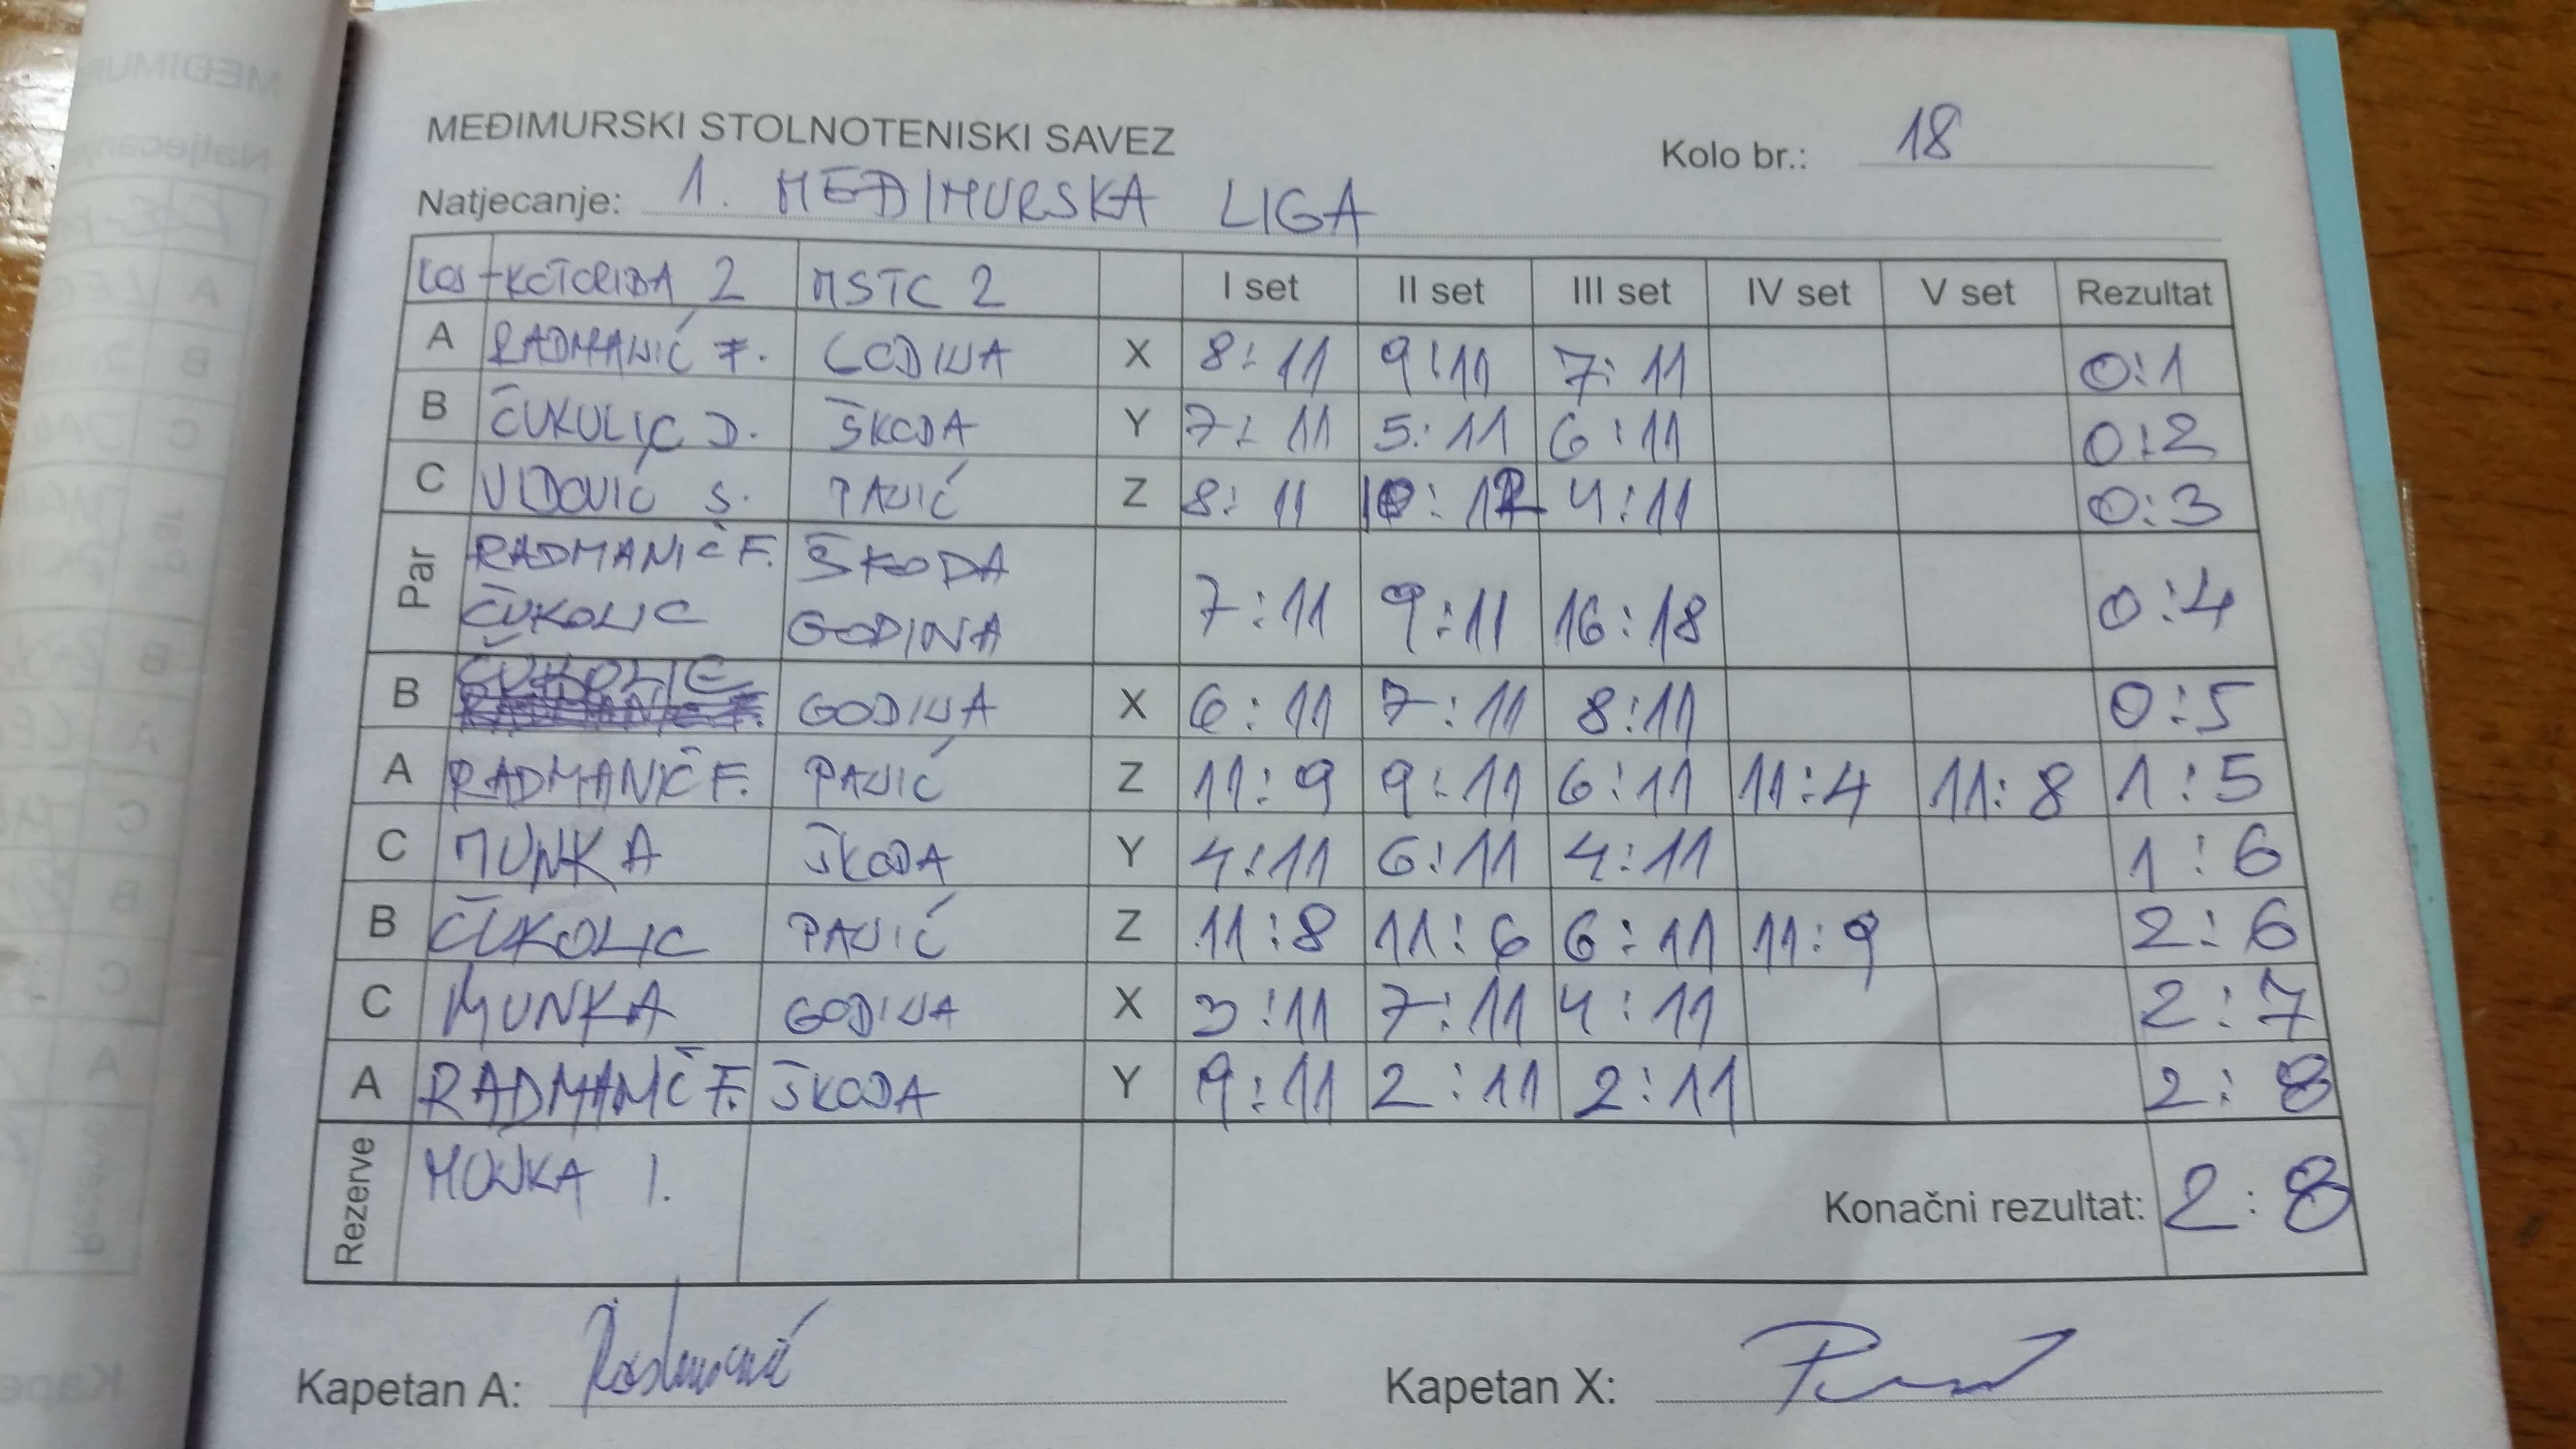 MEĐIMURSKI STOLNOTENISKI SAVEZ
Kolo br.: 18
Natjecanje: 1. MEĐIMURSKA LIGA
KOTORIBA 2 MSTC 2 I set II set III set IV set V set Rezultat
A RADMANIĆ F. GODINA X 8:11 9:11 7:11 0:1
B ČUKULIĆ D. ŠKODA Y 7:11 5:11 6:11 0:2
C VIDOVIĆ S. PAVIĆ Z 8:11 10:12 4:11 0:3
Par RADMANIČ F. ŠKODA
ČUKOLIC GODINA 7:11 9:11 16:18 0:4
B ČUKOLIC GODINA X 6:11 7:11 8:11 0:5
A RADMANIČ F. PAVIĆ Z 11:9 9:11 6:11 11:4 11:8 1:5
C MUNKA ŠKODA Y 4:11 6:11 4:11 1:6
B ČUKOLIC PAVIĆ Z 11:8 11:6 6:11 11:9 2:6
C MUNKA GODINA X 3:11 7:11 4:11 2:7
A RADMANIČ F. ŠKODA Y 9:11 2:11 2:11 2:8
Rezerve MUNKA I. Konačni rezultat: 2:8
Kapetan A: Radmanić Kapetan X: